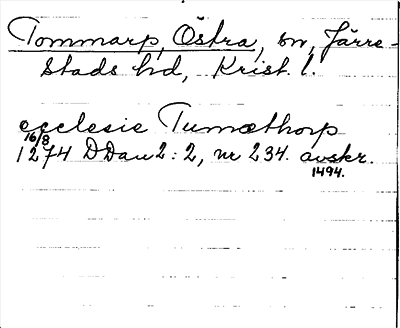 Tommarp, Östra, sn, Järre-
stads hd, Krist. l.
ecclesie Tumæthorp
16/8
1274 DDan 2:2, nr 234. avskr.
1494.